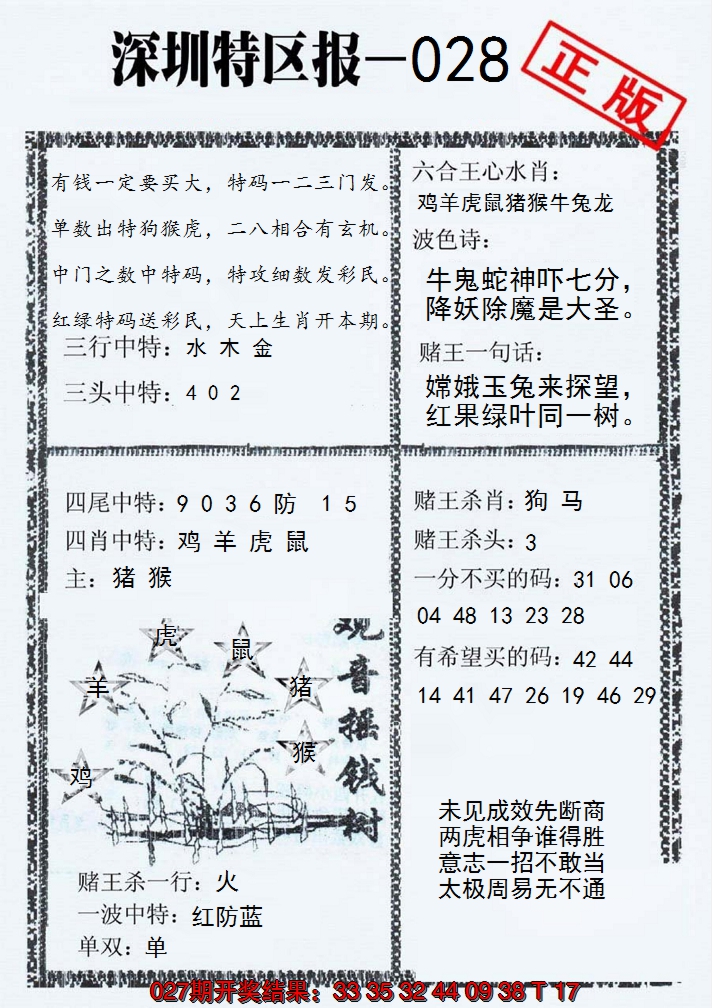 深圳特区报—028
正版
有钱一定要买大，特码一二三门发。
单数出特狗猴虎，二八相合有玄机。
中门之数中特码，特攻细数发彩民。
红绿特码送彩民，天上生肖开本期。
三行中特：水 木 金
三头中特：4 0 2
六合王心水肖：
鸡羊虎鼠猪猴牛兔龙
波色诗：
牛鬼蛇神吓七分，
降妖除魔是大圣。
赌王一句话：
嫦娥玉兔来探望，
红果绿叶同一树。
四尾中特：9 0 3 6 防 1 5
四肖中特：鸡 羊 虎 鼠
主：猪 猴
虎
鼠
羊
猪
猴
鸡
观音摇钱树
赌王杀一行：火
一波中特：红防蓝
单双：单
赌王杀肖：狗 马
赌王杀头：3
一分不买的码：31 06
04 48 13 23 28
有希望买的码：42 44
14 41 47 26 19 46 29
未见成效先断商
两虎相争谁得胜
意志一招不敢当
太极周易无不通
027期开奖结果：33 35 32 44 09 38 T 17